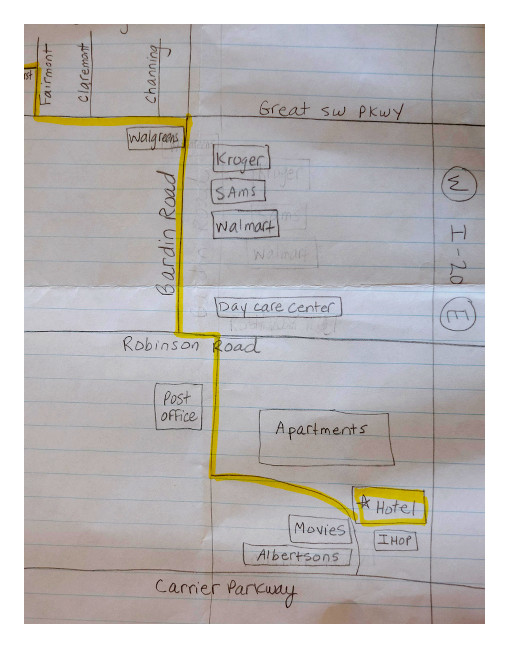 st
Fairmont
Claremont
Channing
Great SW PKWY
Walgreens
Kroger
SAms
Walmart
Bardin Road
W
I-20
E
Day care center
Robinson Road
Post
office
Apartments
Hotel
Movies
IHOP
Albertsons
Carrier Parkway